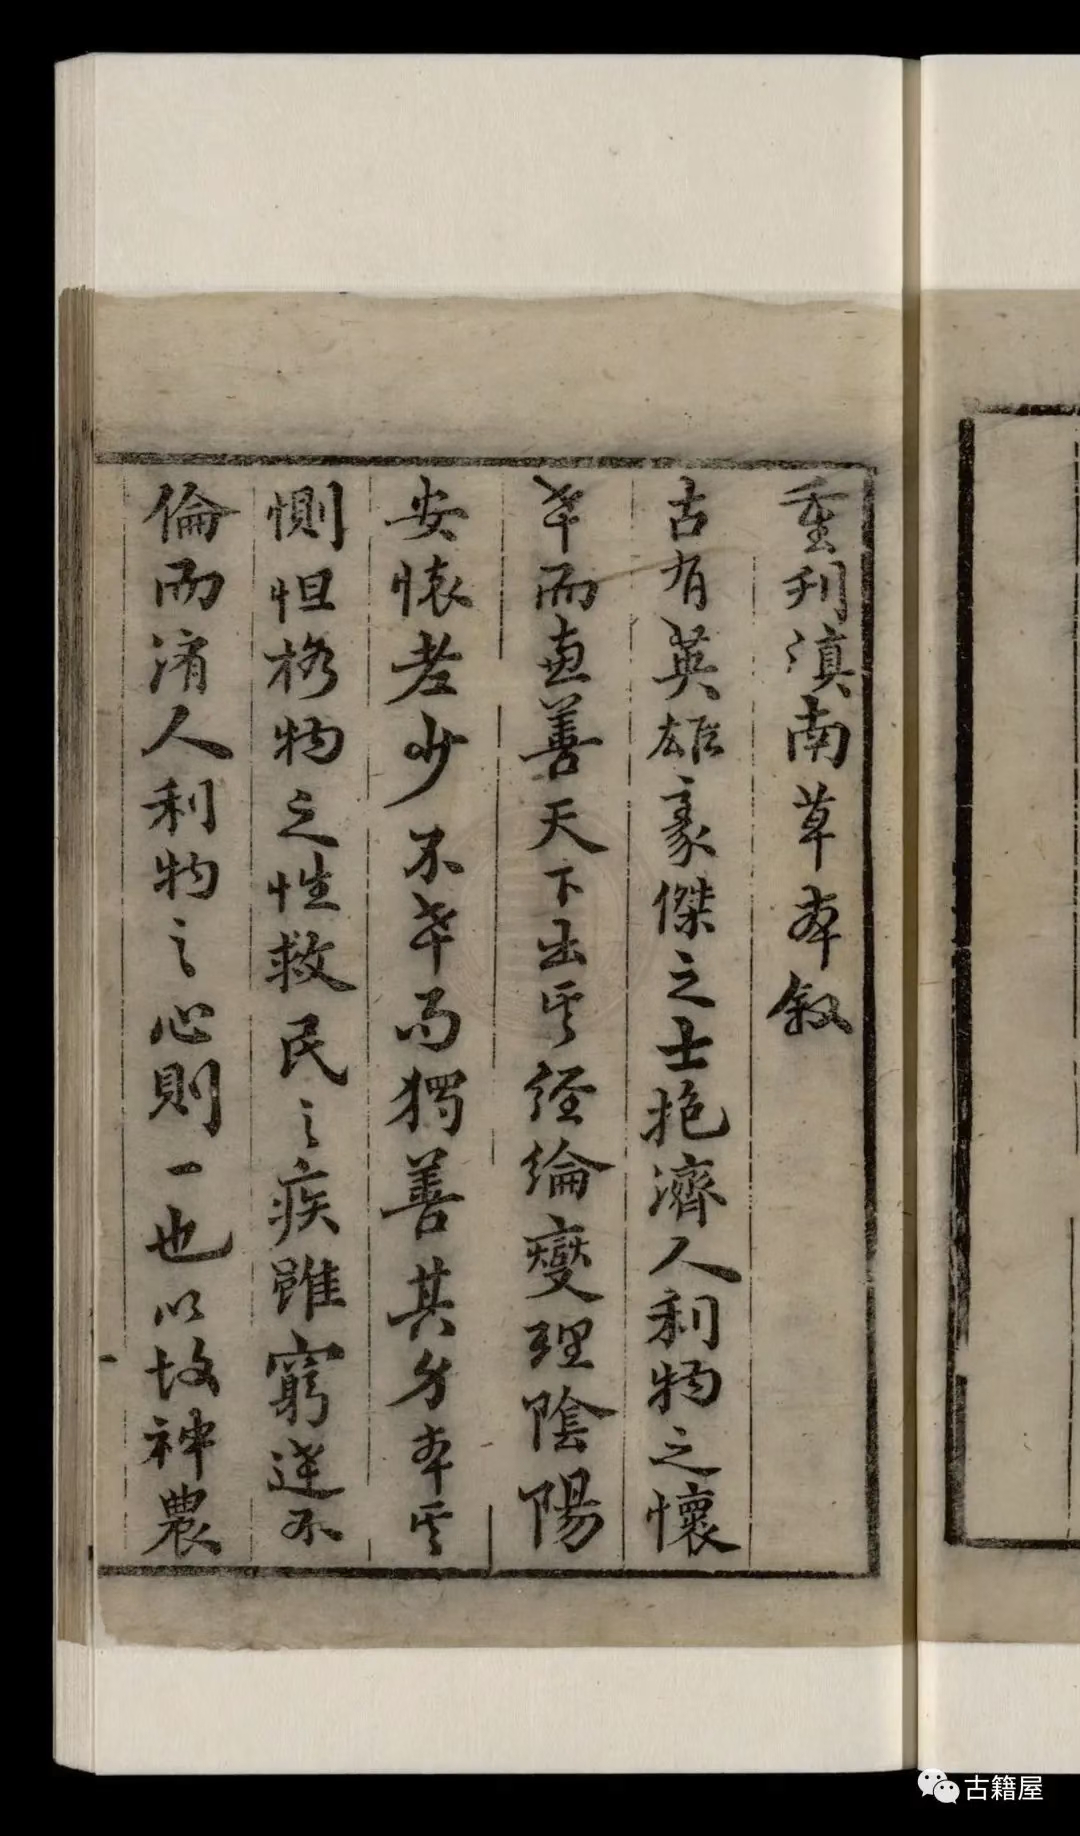 重刊滇南草本叙
古有英雄豪傑之士抱濟人利物之懷
幸而兼善天下出其經綸燮理陰陽
安懷老少不幸而獨善其身本其
惻怛格物之性救民之疾雖窮達不
倫而濟人利物之心則一也以故神農
古籍屋